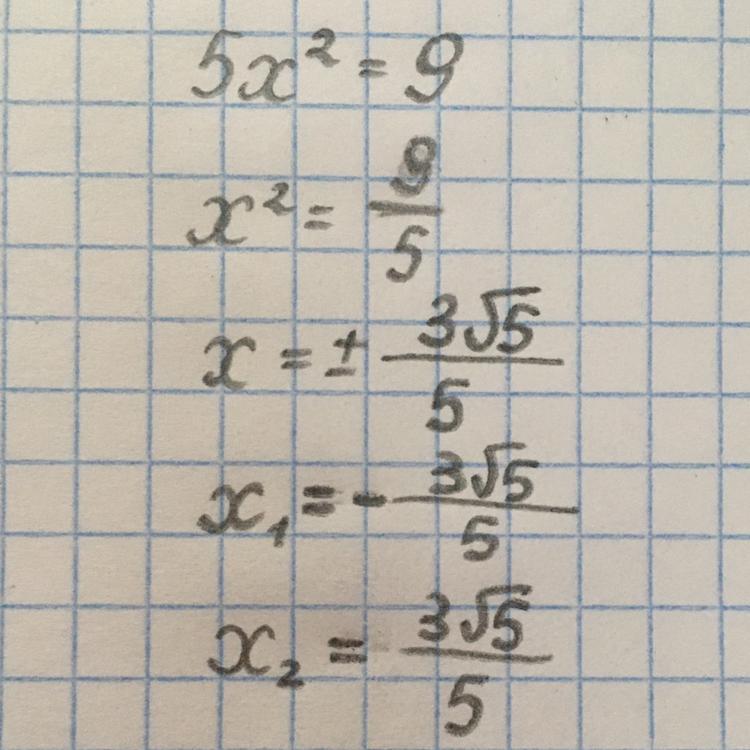 5x² = 9
x² = 9/5
x = ± 3√5/5
x₁ = - 3√5/5
x₂ = 3√5/5